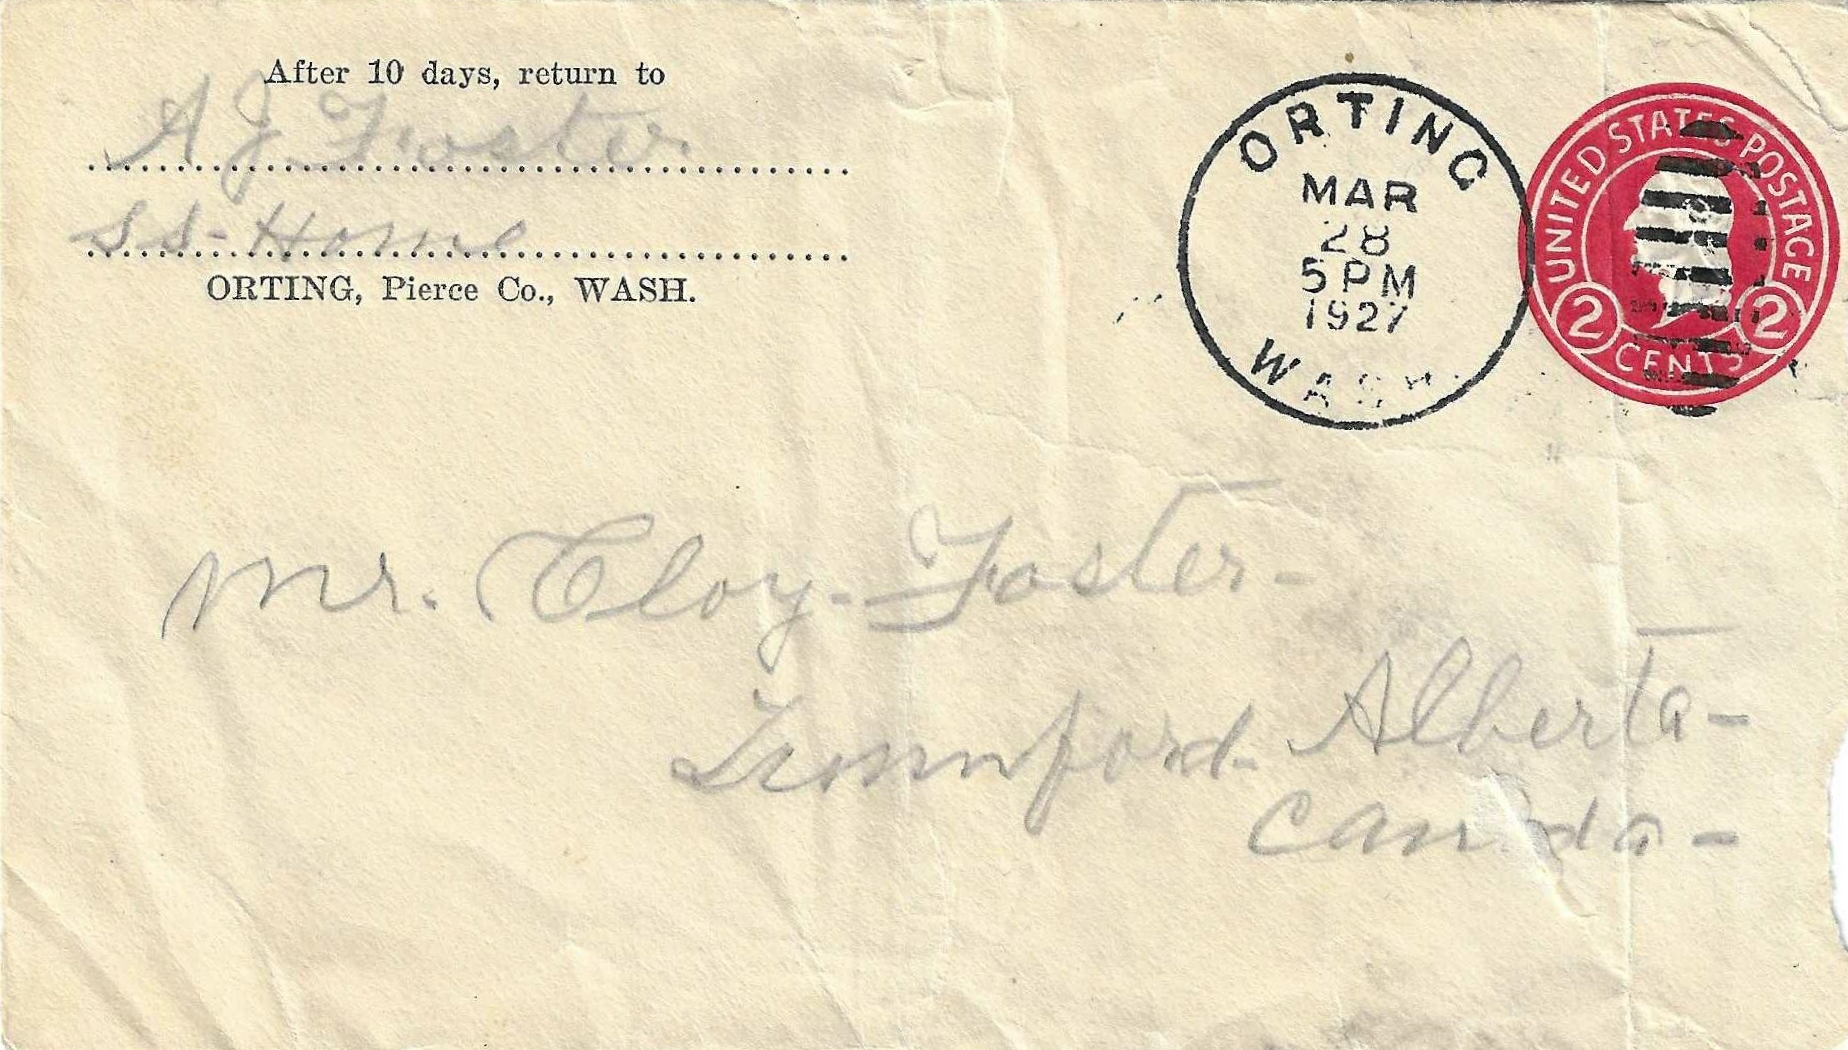 After 10 days, return to
A J Foster
S S - Home
ORTING, Pierce Co., WASH.
ORTING
MAR
28
5 PM
1927
WASH
UNITED STATES POSTAGE
2 CENTS 2
Mr. Cloy - Foster -
Alberta -
Canada -